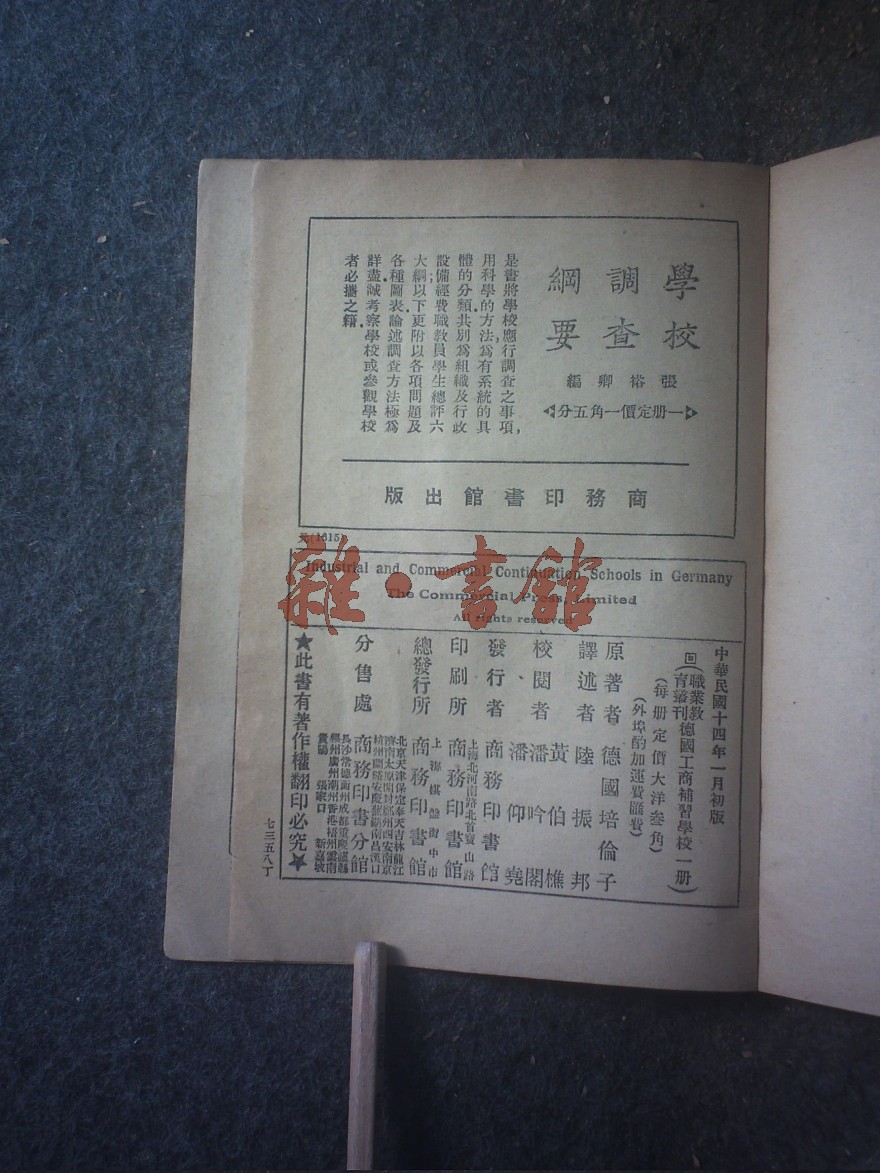 學校調查綱要
張裕卿編
一册定價一角五分
是書將學校應行調查之事項,
用科學的方法,爲有系統的具
體的分類.共別爲組織及行政
設備經費職教員學生總評六
大綱;以下更附以各項問題及
各種圖表.論述調查方法極爲
詳盡,誠考察學校或參觀學校
者必攜之籍.
商務印書館出版
(1615)
Industrial and Commercial Continuation Schools in Germany
The Commercial Press, Limited
All rights reserved
雜·書館
中華民國十四年一月初版
(職業教育叢刊德國工商補習學校一册)
(每册定價大洋叁角)
(外埠酌加運費匯費)
原著者 德國培倫子
譯述者 陸振邦
校閱者 黃伯樵 潘吟閣 潘仰堯
發行者 商務印書館
上海北河南路北首寶山路
印刷所 商務印書館
上海棋盤街中市
總發行所 商務印書館
北京天津保定奉天吉林龍江
濟南太原開封鄭州西安南京
杭州蘭谿安慶蕪湖南昌漢口
分售處 商務印書分館
長沙常德衡州成都重慶瀘縣
福州廣州潮州香港梧州雲南
貴陽 張家口 新嘉坡
★此書有著作權翻印必究★
七三五八丁